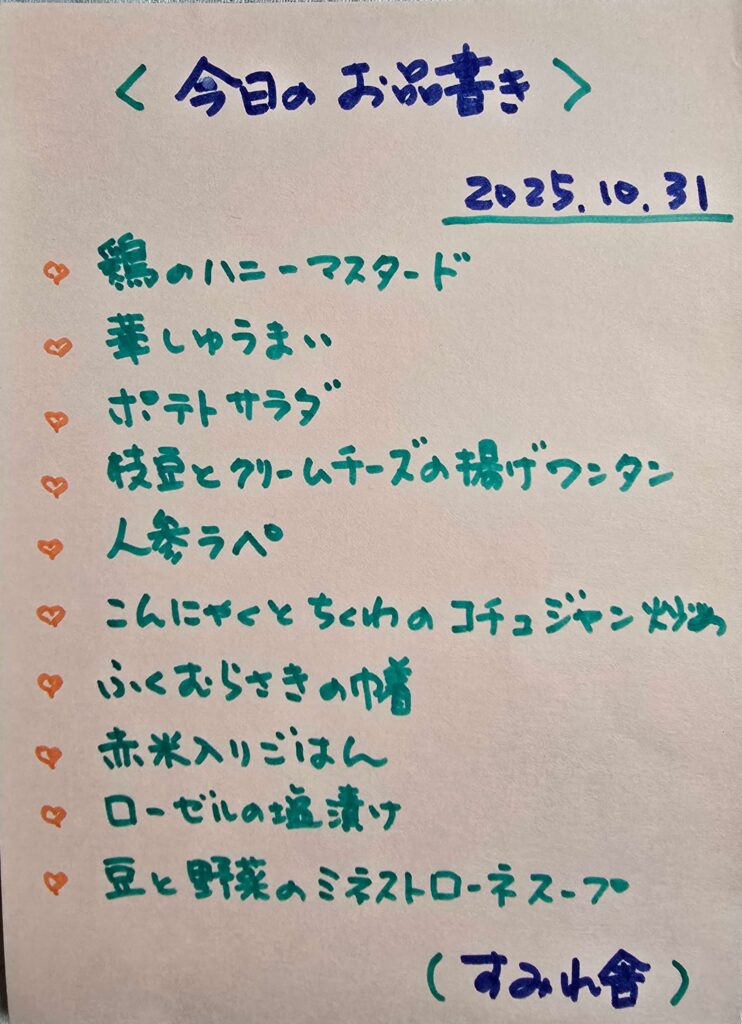 < 今日の お品書き >
2025.10.31
鶏のハニーマスタード
華しゅうまい
ポテトサラダ
枝豆とクリームチーズの揚げワンタン
人参ラペ
こんにゃくとちくわのコチュジャン炒め
ふくむらさきの巾着
赤米入りごはん
ローゼルの塩漬け
豆と野菜のミネストローネスープ
(すみれ舎)